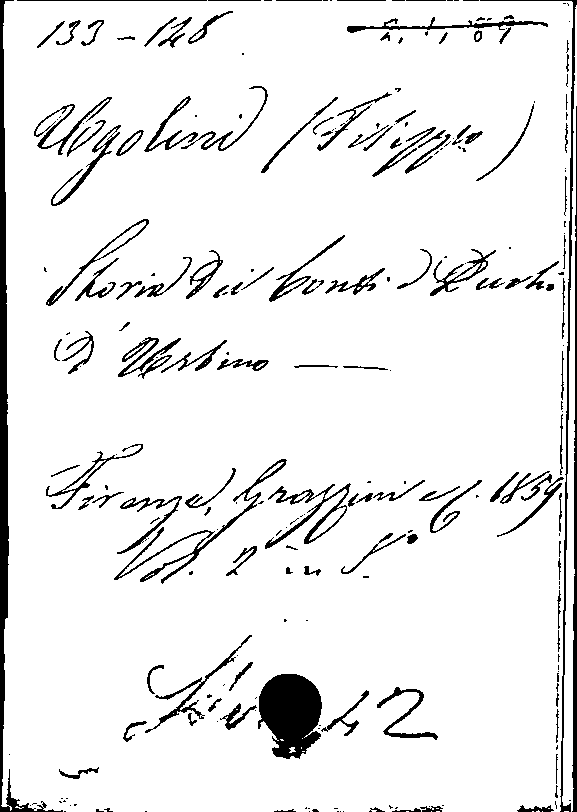 133-128
Ugolini (Filippo)
Storia dei Conti e Duchi
d'Urbino —
Firenze, Grazzini e C. 1859
Vol. 2 in 8°
42